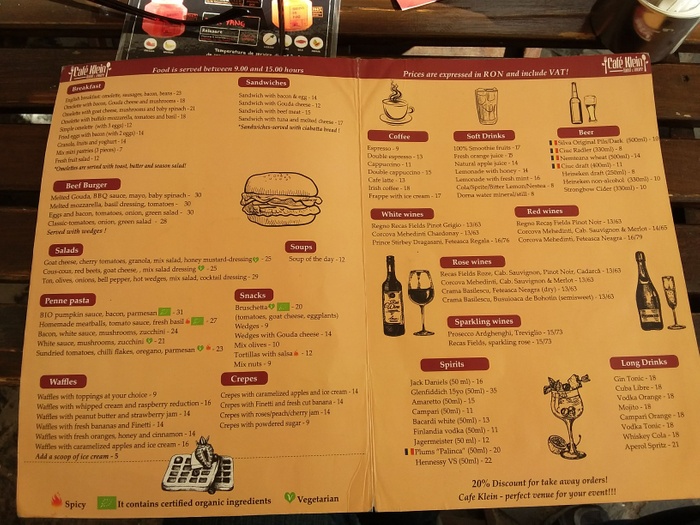 TANG
Café Klein
Food is served between 9.00 and 15.00 hours
Breakfast
English breakfast: omelette, sausages, bacon, beans - 25
Omelette with bacon, Gouda cheese and mushrooms - 18
Omelette with goat cheese, mushrooms and baby spinach - 21
Omelette with buffalo mozzarella, tomatoes and basil - 18
Simple omelette (with 3 eggs) - 12
Fried eggs with bacon (2 eggs) - 14
Granola, fruits and yoghurt - 14
Mix mini pastries (3 pieces) - 7
Fresh fruit salad - 12
*Omelettes are served with toast, butter and season salad!
Sandwiches
Sandwich with bacon & egg - 14
Sandwich with Gouda cheese - 12
Sandwich with beef meat - 15
Sandwich with tuna and melted cheese - 17
*Sandwiches served with ciabatta bread!
Beef Burger
Melted Gouda, BBQ sauce, mayo, baby spinach - 30
Melted mozzarella, basil dressing, tomatoes - 30
Eggs and bacon, tomatoes, onion, green salad - 30
Classic-tomatoes, onion, green salad - 28
Served with wedges !
Salads
Goat cheese, cherry tomatoes, granola, mix salad, honey mustard-dressing - 25
Cous-cous, red beets, goat cheese, , mix salad dressing - 25
Ton, olives, onions, bell pepper, hot wedges, mix salad, cocktail dressing - 29
Soups
Soup of the day - 12
Penne pasta
BIO pumpkin sauce, bacon, parmesan - 31
Homemade meatballs, tomato sauce, fresh basil - 27
Bacon, white sauce, mushrooms, zucchini - 24
White sauce, mushrooms, zucchini - 21
Sundried tomatoes, chilli flakes, oregano, parmesan - 23
Snacks
Bruschetta - 20
(tomatoes, goat cheese, eggplants)
Wedges - 9
Wedges with Gouda cheese - 14
Mix olives - 10
Tortillas with salsa - 12
Mix nuts - 9
Waffles
Waffles with toppings at your choice - 9
Waffles with whipped cream and raspberry reduction - 16
Waffles with peanut butter and strawberry jam - 14
Waffles with fresh bananas and Finetti - 14
Waffles with fresh oranges, honey and cinnamon - 14
Waffles with caramelized apples and ice cream - 16
Add a scoop of ice cream - 5
Crepes
Crepes with caramelized apples and ice cream - 14
Crepes with Finetti and fresh cut banana - 14
Crepes with roses/peach/cherry jam - 14
Crepes with powdered sugar - 9
Spicy
It contains certified organic ingredients
Vegetarian
Prices are expressed in RON and include VAT!
Café Klein
Coffee
Espresso - 9
Double espresso - 13
Cappuccino - 11
Double cappuccino - 15
Cafe latte - 13
Irish coffee - 18
Frappe with ice cream - 17
Soft Drinks
100% Smoothie fruits - 17
Fresh orange juice - 15
Natural apple juice - 14
Lemonade with honey - 14
Lemonade with fresh mint - 16
Cola/Sprite/Bitter Lemon/Nestea - 8
Dorna water mineral/still - 8
Beer
Silva Original Pils/Dark (500ml) - 10
Ciuc Radler (330ml) - 8
Neumarkt wheat (500ml) - 14
Ciuc draft (400ml) - 11
Heineken draft (250ml) - 8
Heineken non-alcohol (330ml) - 10
Strongbow Cider (330ml) - 10
White wines
Regno Recas Fields Pinot Grigio - 13/63
Corcova Mehedinti Chardonay - 13/63
Prince Stirbey Dragasani, Feteasca Regala - 16/76
Red wines
Regno Recas Fields Pinot Noir - 13/63
Corcova Mehedinti, Cab. Sauvignon & Merlot - 14/65
Corcova Mehedinti, Feteasca Neagra - 16/79
Rose wines
Recas Fields Roze, Cab. Sauvignon, Pinot Noir, Cadarcă - 13/63
Corcova Mehedinti, Cab. Sauvignon & Merlot - 13/63
Crama Basilescu, Feteasca Neagra (dry) - 13/65
Crama Basilescu, Busuioaca de Bohotin (semisweet) - 13/63
Sparkling wines
Prosecco Ardghenghi, Treviglio - 15/73
Recas Fields, sparkling rose - 15/73
Spirits
Jack Daniels (50 ml) - 16
Glenfiddich 15yo (50ml) - 35
Amaretto (50ml) - 15
Campari (50ml) - 11
Bacardi white (50ml) - 13
Finlandia vodka (50ml) - 11
Jagermeister (50 ml) - 12
Plums "Palinca" (50ml) - 20
Hennessy VS (50ml) - 22
Long Drinks
Gin Tonic - 18
Cuba Libre - 18
Vodka Orange - 18
Mojito - 18
Campari Orange - 18
Vodka Tonic - 18
Whiskey Cola - 18
Aperol Spritz - 21
20% Discount for take away orders!
Cafe Klein - perfect venue for your event!!!